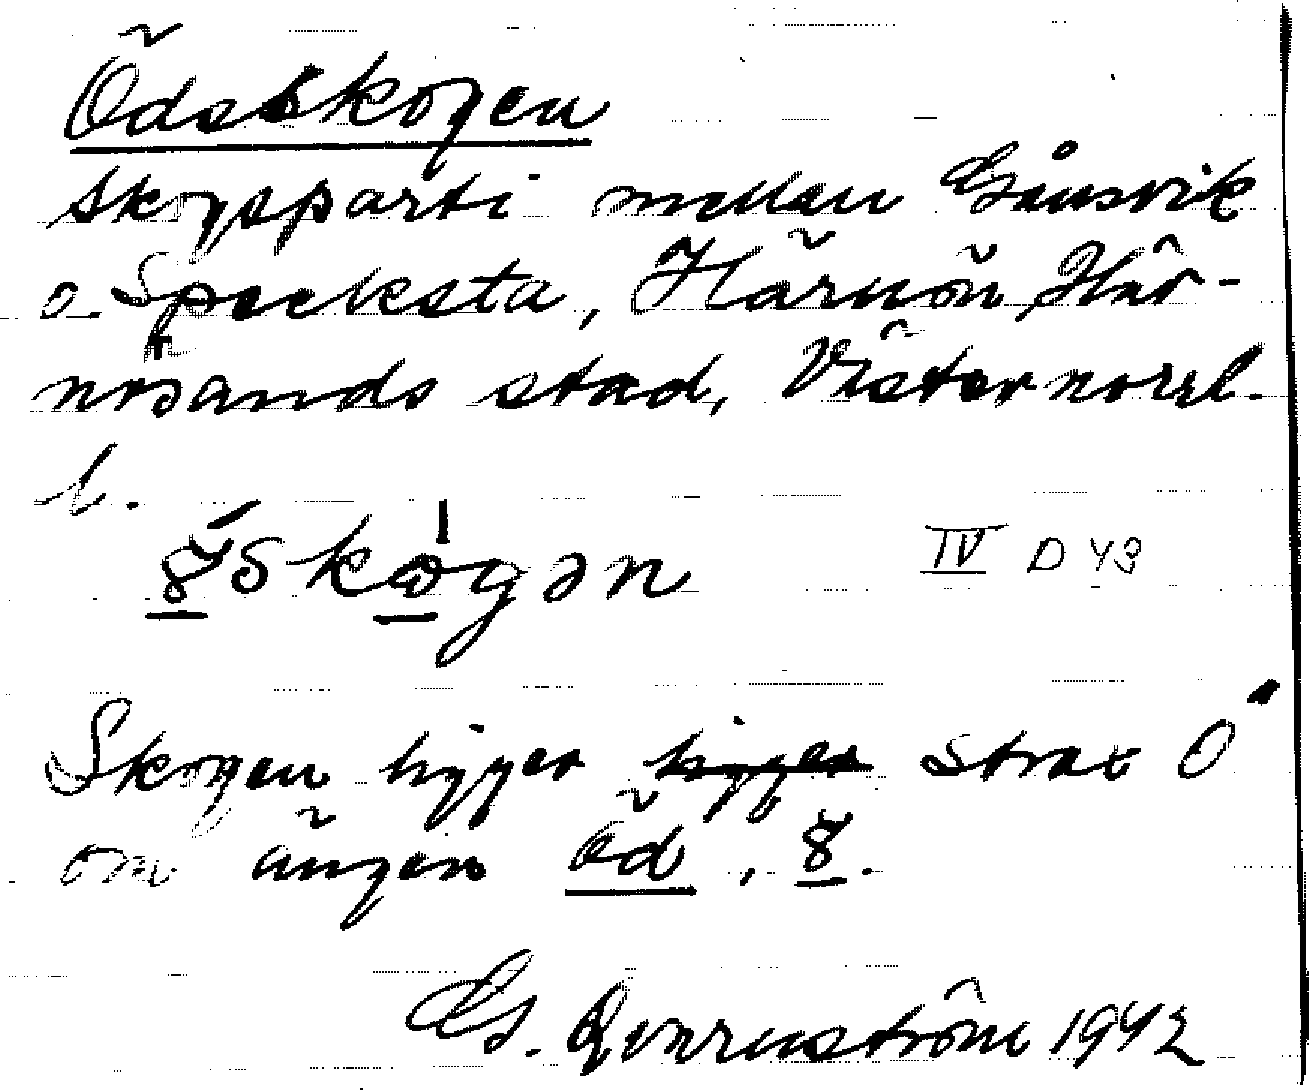 Ödsskogen
skogsparti mellan Gånsvik
o. Specksta, Härnön, Här-
nösands stad, Västernorrl.
l.
IV D 43
Skogen ligger ligger strax Ö
om ängen Öd,
G. Qvarnström 1942